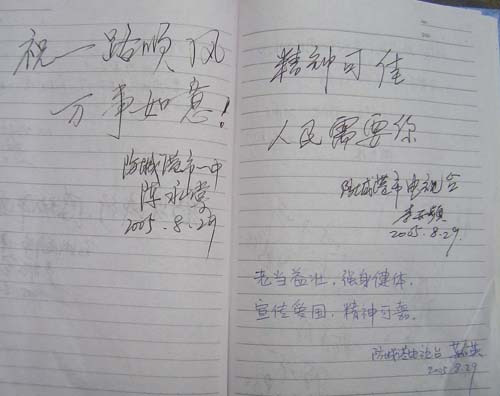 祝一路顺风
万事如意!
防城港市一中
陈
2005.8.29
精神可佳
人民需要你
防城港市电视台
李
2005.8.29
老当益壮,强身健体.
宣传爱国,精神可嘉.
防城港电视台
2005.8.29